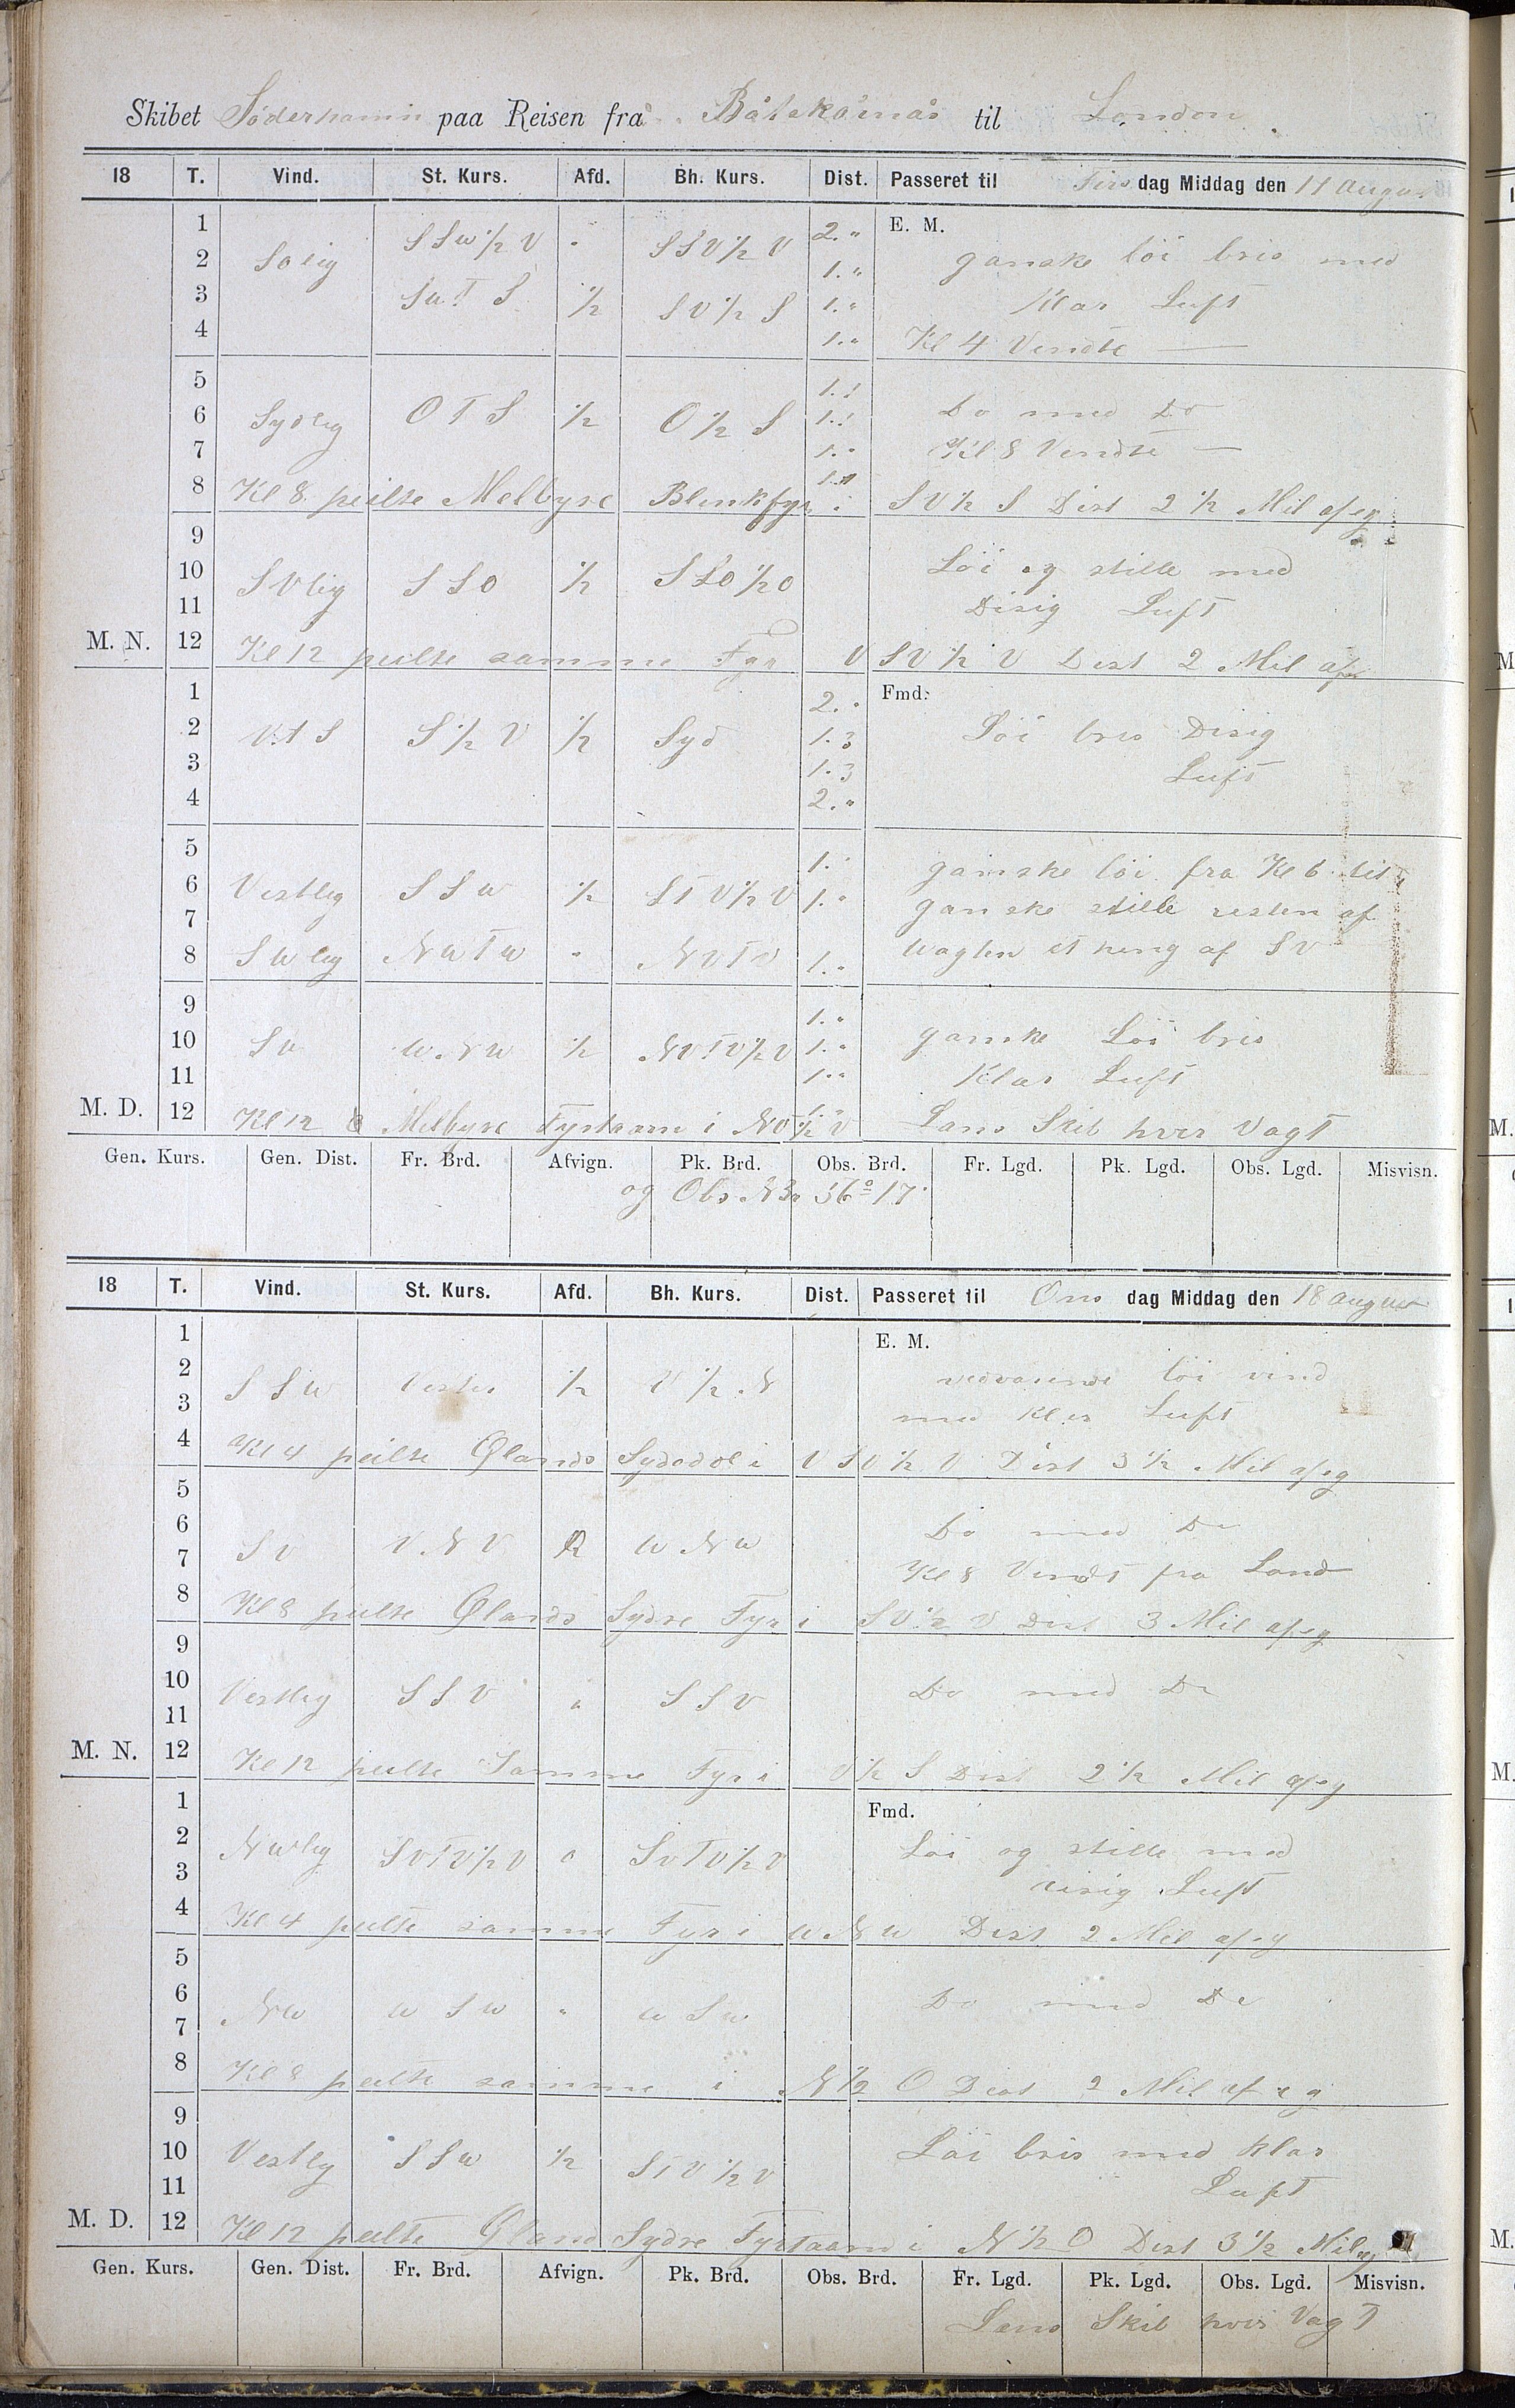 Skibet Söderhamn paa Reisen fra Båtskärnäs til London.
18 T. Vind. St. Kurs. Afd. Bh. Kurs. Dist. Passeret til Tirs dag Middag den 17 August
1 2. " E. M.
2 Solig SSW ½ V " SSV ½ V 1. " ganske löi bris med
3 SWTS ½ SV ½ S 1. " Klar Luft
4 1. " Kl 4 Vendte
5 1.
6 Sydlig OTS ½ O ½ S 1. Do med Do
7 1. " Kl 8 Vendte
8 Kl 8 peilte Melbyre Blinkfyr i SV ½ S Dist 2 ½ Mil af sig
9
10 SVlig SSO ½ SSO ½ O Löi og stille med
11 Disig Luft
M. N. 12 Kl 12 peilte samme Fyr VSV ½ V Dist 2 Mil af
1 2. " Fmd.
2 VTS S ½ V ½ Syd 1. 3 Löi bris Disig
3 1. 3 Luft
4 2. "
5 1. " ganske löi fra Kl 6 til
6 Vestlig SSW ½ STV ½ V 1. " ganske stille resten af
7
8 SWlig NWTW " NVTV 1. " Vagten et
 af SV
9 1. "
10 SW W.NW ½ NVTV ½ V 1. " ganske Löi bris
11 1. " Klar Luft
M. D. 12 Kl 12 Melbyre Fyrtaarn i NV ½ V Lens Skib hver Vagt
Gen. Kurs. Gen. Dist. Fr. Brd. Afvign. Pk. Brd. Obs. Brd. Fr. Lgd. Pk. Lgd. Obs. Lgd. Misvisn.
og Obs. N Br 56° 17'
18 T. Vind. St. Kurs. Afd. Bh. Kurs. Dist. Passeret til Ons dag Middag den 18 August
1 E. M.
2 SSW Vester ½ V ½ N vedvarende löi vind
3 med Klar Luft
4 Kl 4 peilte Ølands i VSV ½ V Dist 3 ½ Mil af sig
5
6 Do med Do
7 SV V.NV W NW Kl 8 Vendt fra Land
8 Kl 8 peilte Ølands Sydre Fyr i SV ½ V Dist 3 Mil af sig
9
10 Vestlig SSV " SSV Do med Do
11
M. N. 12 Kl 12 peilte Samme Fyr i V ½ S Dist 2 ½ Mil af sig
1 Fmd.
2 NWlig SVTV ½ V " SVTV ½ V Löi og stille med
3 disig Luft
4 Kl 4 peilte samme Fyr i W NW Dist 2 Mil af sig
5
6 NW W SW " W SW Do med Do
7
8 Kl 8 peilte samme i N ½ O Dist 2 Mil af sig
9
10 Vestlig SSW ½ STV ½ V Löi bris med klar
11 Luft
M. D. 12 Kl 12 peilte Øland Sydre Fyrtaarn i N ½ O Dist 3 ½ Mil
Gen. Kurs. Gen. Dist. Fr. Brd. Afvign. Pk. Brd. Obs. Brd. Fr. Lgd. Pk. Lgd. Obs. Lgd. Misvisn.
Lens Skib hver Vagt